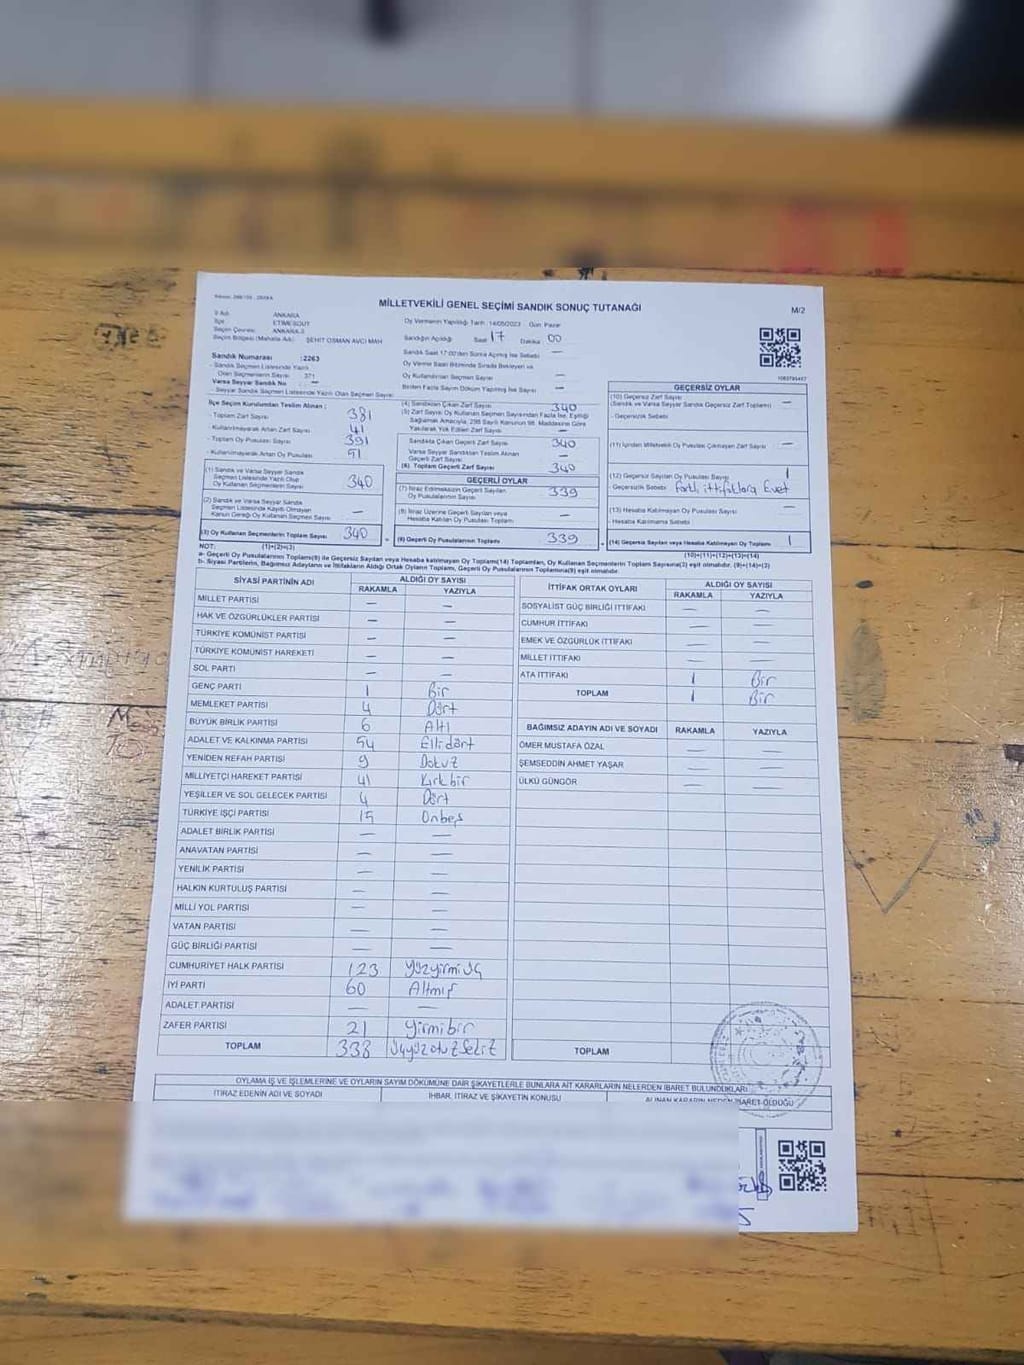 MİLLETVEKİLİ GENEL SEÇİMİ SANDIK SONUÇ TUTANAĞI
M/2
İl Adı: ANKARA
İlçe: ETİMESGUT
Seçim Çevresi: ANKARA 3
Seçim Bölgesi (Mahalle Adı): ŞEHİT OSMAN AVCI MAH
Oy Vermenin Yapıldığı Tarih: 14/05/2023 Gün: Pazar
Sandığın Açıldığı Saat 17 Dakika 00
Sandık Numarası : 2263
- Sandık Seçmen Listesinde Yazılı Olan Seçmenlerin Sayısı 371
Varsa Seyyar Sandık No —
- Seyyar Sandık Seçmen Listesinde Yazılı Olan Seçmen Sayısı
Sandık Saat 17:00'den Sonra Açılmış İse Sebebi —
Oy Verme Saati Bitiminde Sırada Bekleyen ve Oy Kullandırılan Seçmen Sayısı —
Birden Fazla Sayım Döküm Yapılmış İse Sayısı —
İlçe Seçim Kurulundan Teslim Alınan :
- Toplam Zarf Sayısı 381
- Kullanılmayarak Artan Zarf Sayısı 41
- Toplam Oy Pusulası Sayısı 391
- Kullanılmayarak Artan Oy Pusulası 51
(1) Sandık ve Varsa Seyyar Sandık Seçmen Listesinde Yazılı Olup Oy Kullanan Seçmenlerin Sayısı 340
(2) Sandık ve Varsa Seyyar Sandık Seçmen Listesinde Kaydı Olmayan Kanun Gereği Oy Kullanan Seçmen Sayısı —
(3) Oy Kullanan Seçmenlerin Toplam Sayısı 340
(1)+(2)=(3)
(4) Sandıktan Çıkan Zarf Sayısı 340
(5) Zarf Sayısı Oy Kullanan Seçmen Sayısından Fazla İse, Eşitliği Sağlamak Amacıyla, 298 Sayılı Kanunun 98. Maddesine Göre Yakılarak Yok Edilen Zarf Sayısı —
Sandıkta Çıkan Geçerli Zarf Sayısı 340
Varsa Seyyar Sandıktan Teslim Alınan Geçerli Zarf Sayısı —
(6) Toplam Geçerli Zarf Sayısı 340
GEÇERLİ OYLAR
(7) İtiraz Edilmeksizin Geçerli Sayılan Oy Pusulalarının Sayısı 339
(8) İtiraz Üzerine Geçerli Sayılan veya Hesaba Katılan Oy Pusulası Toplamı —
(9) Geçerli Oy Pusulalarının Toplamı 339
GEÇERSİZ OYLAR
(10) Geçersiz Zarf Sayısı (Sandık ve Varsa Seyyar Sandık Geçersiz Zarf Toplamı) —
- Geçersizlik Sebebi
(11) İçinden Milletvekili Oy Pusulası Çıkmayan Zarf Sayısı —
(12) Geçersiz Sayılan Oy Pusulası Sayısı 1
- Geçersizlik Sebebi farklı ittifaklara Evet
(13) Hesaba Katılmayan Oy Pusulası Sayısı —
- Hesaba Katılmama Sebebi
(14) Geçersiz Sayılan veya Hesaba Katılmayan Oy Toplamı 1
(10)+(11)+(12)+(13)=(14)
NOT:
a- Geçerli Oy Pusulaları Toplamı(9) ile Geçersiz Sayılan veya Hesaba katılmayan Oy Toplamı(14) Toplamları, Oy Kullanan Seçmenlerin Toplam Sayısına(3) eşit olmalıdır. (9)+(14)=(3)
b- Siyasi Partilerin, Bağımsız Adayların ve İttifakların Aldığı Ortak Oyların Toplamı, Geçerli Oy Pusulalarının Toplamına(9) eşit olmalıdır.
SİYASİ PARTİNİN ADI ALDIĞI OY SAYISI
RAKAMLA YAZIYLA
MİLLET PARTİSİ — —
HAK VE ÖZGÜRLÜKLER PARTİSİ — —
TÜRKİYE KOMÜNİST PARTİSİ — —
TÜRKİYE KOMÜNİST HAREKETİ — —
SOL PARTİ — —
GENÇ PARTİ 1 Bir
MEMLEKET PARTİSİ 4 Dört
BÜYÜK BİRLİK PARTİSİ 6 Altı
ADALET VE KALKINMA PARTİSİ 54 Ellidört
YENİDEN REFAH PARTİSİ 9 Dokuz
MİLLİYETÇİ HAREKET PARTİSİ 41 Kırkbir
YEŞİLLER VE SOL GELECEK PARTİSİ 4 Dört
TÜRKİYE İŞÇİ PARTİSİ 15 Onbeş
ADALET BİRLİK PARTİSİ — —
ANAVATAN PARTİSİ — —
YENİLİK PARTİSİ — —
HALKIN KURTULUŞ PARTİSİ — —
MİLLİ YOL PARTİSİ — —
VATAN PARTİSİ — —
GÜÇ BİRLİĞİ PARTİSİ — —
CUMHURİYET HALK PARTİSİ 123 Yüzyirmi üç
İYİ PARTİ 60 Altmış
ADALET PARTİSİ — —
ZAFER PARTİSİ 21 Yirmibir
TOPLAM 338 Üçyüzotuzsekiz
İTTİFAK ORTAK OYLARI ALDIĞI OY SAYISI
RAKAMLA YAZIYLA
SOSYALİST GÜÇ BİRLİĞİ İTTİFAKI — —
CUMHUR İTTİFAKI — —
EMEK VE ÖZGÜRLÜK İTTİFAKI — —
MİLLET İTTİFAKI — —
ATA İTTİFAKI 1 Bir
TOPLAM 1 Bir
BAĞIMSIZ ADAYIN ADI VE SOYADI RAKAMLA YAZIYLA
ÖMER MUSTAFA ÖZAL — —
ŞEMSEDDİN AHMET YAŞAR — —
ÜLKÜ GÜNGÖR — —
TOPLAM
OYLAMA İŞ VE İŞLEMLERİNE VE OYLARIN SAYIM DÖKÜMÜNE DAİR ŞİKAYETLERLE BUNLARA AİT KARARLARIN NELERDEN İBARET BULUNDUKLARI
İTİRAZ EDENİN ADI VE SOYADI İHBAR, İTİRAZ VE ŞİKAYETİN KONUSU ALINAN KARARIN NEDEN İBARET OLDUĞU